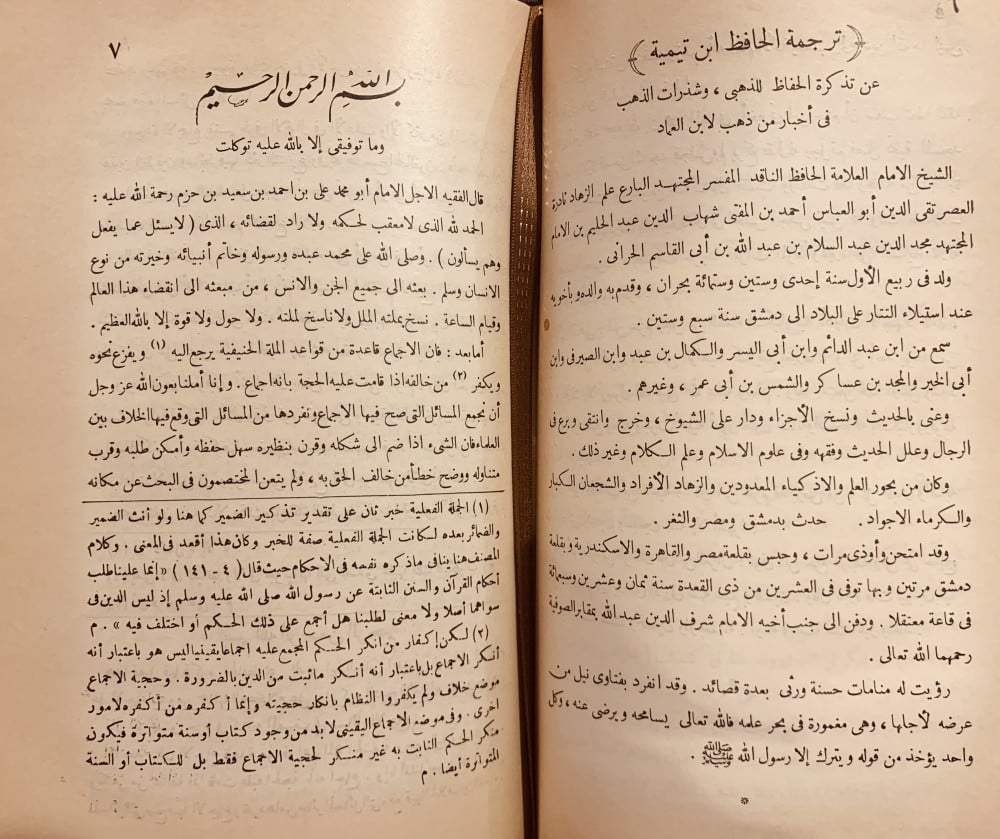 ﴿ ترجمة الحافظ ابن تيمية ﴾
عن تذكرة الحفاظ للذهبي ، وشذرات الذهب
فى أخبار من ذهب لابن العماد
الشيخ الامام العلامة الحافظ الناقد المفسر المجتهد البارع علم الزهاد نادرة
العصر تقى الدين أبو العباس أحمد بن المفتى شهاب الدين عبد الحليم بن الامام
المجتهد مجد الدين عبد السلام بن عبد الله بن أبى القاسم الحرانى .
ولد فى ربيع الأول سنة إحدى وستين وستمائة بحران ، وقدم به والده وبأخويه
عند استيلاء التتار على البلاد الى دمشق سنة سبع وستين .
سمع من ابن عبد الدائم وابن أبى اليسر والكمال بن عبد وابن الصيرفى وابن
أبى الخير والمجد بن عساكر والشمس بن أبى عمر ، وغيرهم .
وعنى بالحديث ونسخ الأجزاء ودار على الشيوخ ، وخرج وانتقى وبرع فى
الرجال وعلل الحديث وفقهه وفى علوم الاسلام وعلم الكلام وغير ذلك .
وكان من بحور العلم والاذكياء المعدودين والزهاد الأفراد والشجعان الكبار
والكرماء الاجواد . حدث بدمشق ومصر والثغر .
وقد امتحن وأوذى مرات ، وحبس بقلعة مصر والقاهرة والاسكندرية وبقلعة
دمشق مرتين وبها توفى فى العشرين من ذى القعدة سنة ثمان وعشرين وسبعمائة
فى قاعة معتقلا . ودفن الى جنب أخيه الامام شرف الدين عبد الله بمقابر الصوفية
رحمهما الله تعالى .
رؤيت له منامات حسنة ورثى بعدة قصائد . وقد انفرد بفتاوى نيل من
عرضه لأجلها ، وهى مغمورة فى بحر علمه فالله تعالى يسامحه ويرضى عنه ، وكل
واحد يؤخذ من قوله ويترك إلا رسول الله ﷺ .
*
٧
بسم الله الرحمن الرحيم
وما توفيقى إلا بالله عليه توكلت
قال الفقيه الاجل الامام أبو محمد على بن احمد بن سعيد بن حزم رحمة الله عليه :
الحمد لله الذى لا معقب لحكمه ولا راد لقضائه ، الذى ( لا يسئل عما يفعل
وهم يسألون ) . وصلى الله على محمد عبده ورسوله وخاتم أنبيائه وخيرته من نوع
الانسان وسلم . بعثه الى جميع الجن والانس ، من مبعثه الى انقضاء هذا العالم
وقيام الساعة . نسخ بملته الملل ولا ناسخ لملته . ولا حول ولا قوة إلا بالله العظيم .
أما بعد : فان الاجماع قاعدة من قواعد الملة الحنيفية يرجع اليه (١) ويفزع نحوه
ويكفر (٢) من خالفه اذا قامت عليه الحجة بانه اجماع . وإنا أملنا بعون الله عز وجل
أن نجمع المسائل التى صح فيها الاجماع ونفردها من المسائل التى وقع فيها الخلاف بين
العلماء فان الشىء اذا ضم الى شكله وقرن بنظيره سهل حفظه وأمكن طلبه وقرب
متناوله ووضح خطأ من خالف الحق به ، ولم يتعن المختصمون فى البحث عن مكانه
(١) الجملة الفعلية خبر ثان على تقدير تذكير الضمير كما هنا ولو أنث الضمير
والضمائر بعده لكانت الجملة الفعلية صفة للخبر وكان هذا أقعد فى المعنى . وكلام
المصنف هنا ينافى ماذكره نفسه فى الاحكام حيث قال ( ٤ - ١٤١ ) « إنما علينا طلب
أحكام القرآن والسنن الثابتة عن رسول الله صلى الله عليه وسلم إذ ليس الدين فى
سواهما أصلا ولا معنى لطلبنا هل أجمع على ذلك الحكم أو اختلف فيه » . م
(٢) لكن إكفار من انكر الحكم المجمع عليه اجماعا يقينيا ليس هو باعتبار أنه
أنكر الاجماع بل باعتبار أنه أنكر ماثبت من الدين بالضرورة . وحجية الاجماع
موضع خلاف ولم يكفروا النظام بانكار حجيته وإنما أكفره من أكفره لامور
اخرى . وفى موضع الاجماع اليقينى لابد من وجود كتاب أو سنة متواترة فيكون
منكر الحكم الثابت به غير منكر لحجية الاجماع فقط بل للكتاب أو السنة
المتواترة أيضا . م